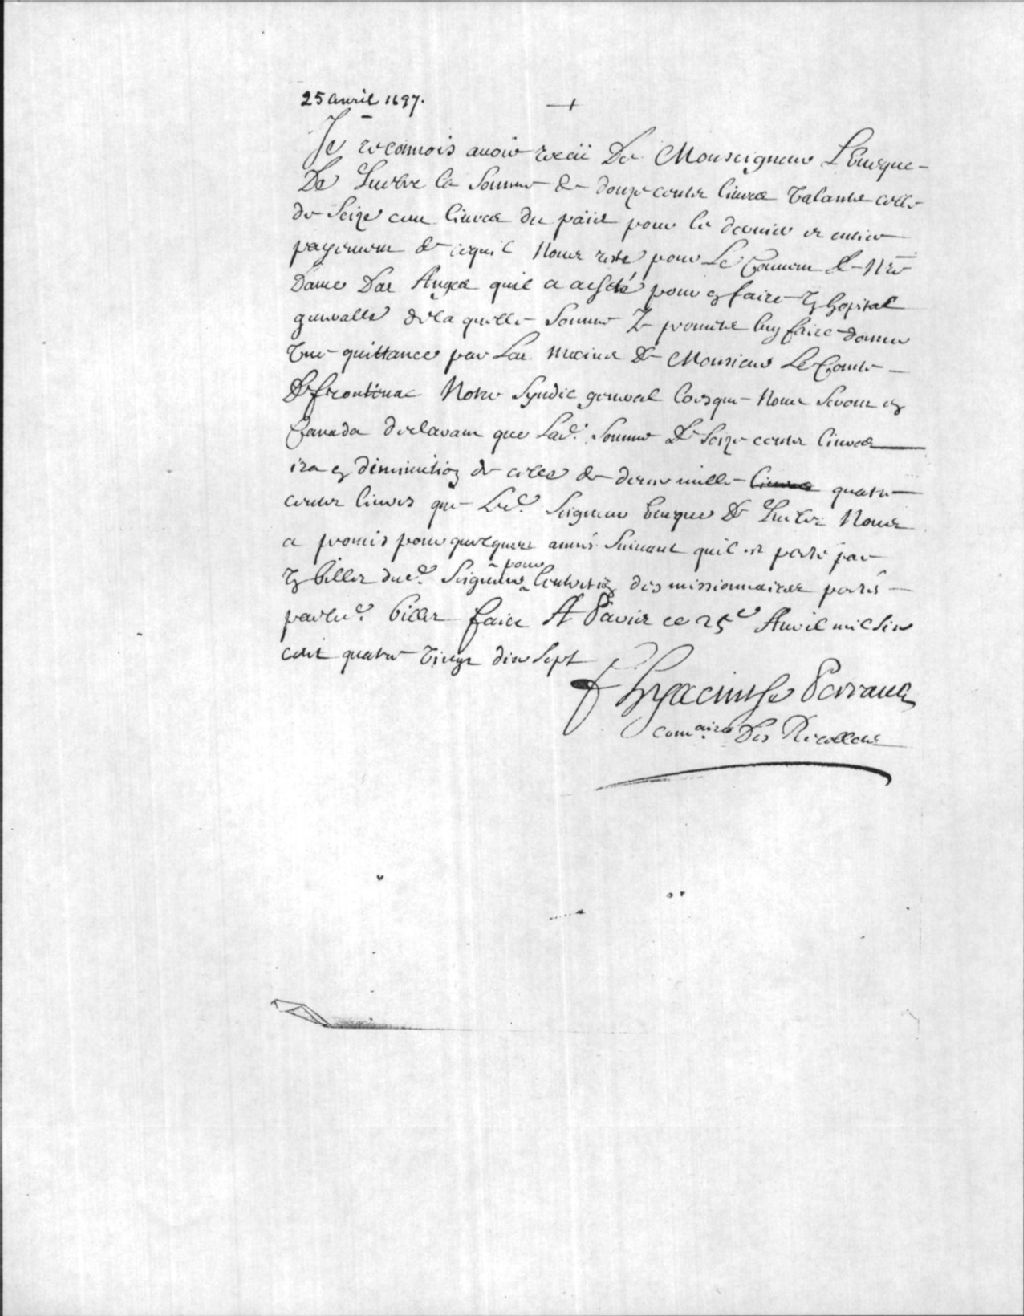 25 avril 1697.
Je reconnois auoir receü De Monseigneur L'Euesque
De Quebec la Somme de douze cents liures valante celle
de Seize cens liures du païs pour le dernier et entier
payement de ce qu'il Nous reste pour Le Couuent de Nre
Dame Des Anges quil a achété pour en faire un hopital
general de la quelle Somme Je promets luy faire donner
une quittance par Les mains de Monsieur Le Comte
De frontenac Notre Syndic general lorsque Nous Serons en
Canada declarant que Lad. Somme De Seize cents liures
ira en diminution de celle de deux mille quatre
cents liures que Led. Seigneur Euesque De Quebec Nous
a promis pour quelques années Suiuant quil est porté par
un billet dud. Seigneur pour des missionnaires portés
par led. billet faict A Paris ce 25e Auril mil Six
cent quatre vingt dix Sept
f hyacinthe Perrault
Comaire Des Recollets